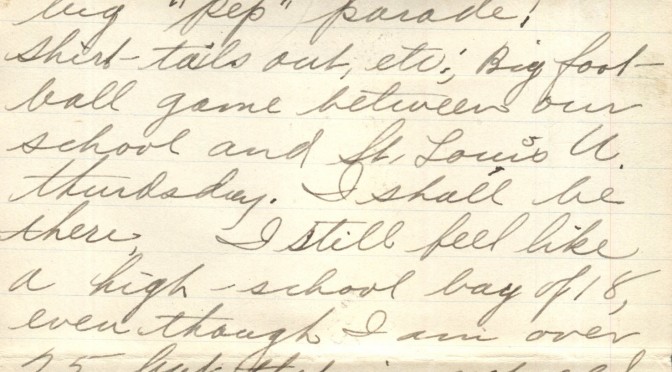 big "pep" parade!
shirt-tails out, etc; Big foot-
ball game between our
school and St. Louis U.
thurdsday. I shall be
there, I still feel like
a high-school boy of 18,
even though I am over
25 but that is